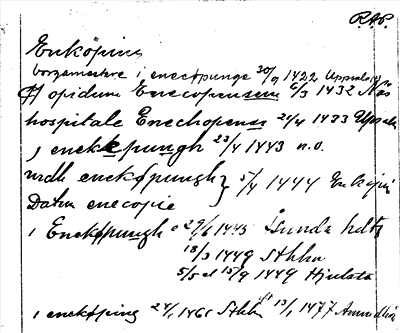 R.A.P.
Enköping
borgamestare i enecøpunge 30/9 1422 Uppsala
opidum Enecopensem 6/3 1432 Näs
hospitale Enechopense 21/4 1433 Uppsala
j enekkepungh 23/4 1443 n.o.
widh enekøpungh } 5/4 1444 Enköping
Datum enecopie
i Enekøpungh 29/6 1445 Lunda hdtz
18/3 1449 Sthlm
5/5 el 15/9 1449 Hjulsta
i enekøping 24/1 1461 Sthlm 13/1 1477